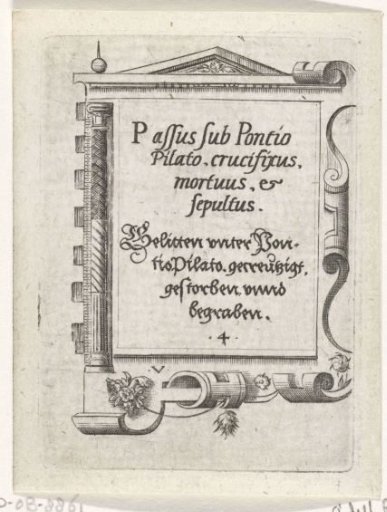 Passus sub Pontio
Pilato, crucifixus,
mortuus, &
sepultus.
Gelitten vnter Pon-
tio Pilato gecreutzigt,
gestorben vnnd
begraben.
· 4 ·